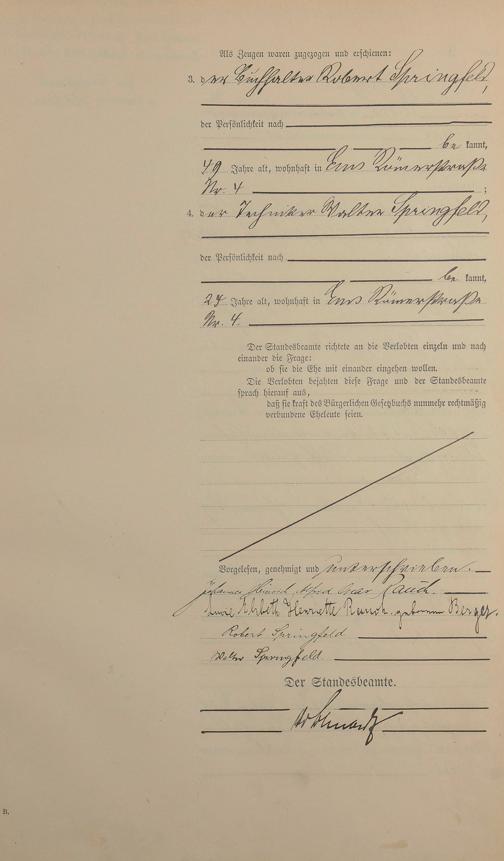 Als Zeugen waren zugezogen und erschienen:
3. der Buchhalter Robert Springfeld,
der Persönlichkeit nach
be kannt,
49 Jahre alt, wohnhaft in Ems Römerstraße
Nr. 4 ;
4. der Techniker Walter Springfeld,
der Persönlichkeit nach
be kannt,
24 Jahre alt, wohnhaft in Ems Römerstraße
Nr. 4.
Der Standesbeamte richtete an die Verlobten einzeln und nach
einander die Frage:
ob sie die Ehe mit einander eingehen wollen.
Die Verlobten bejahten diese Frage und der Standesbeamte
sprach hierauf aus,
daß sie kraft des Bürgerlichen Gesetzbuchs nunmehr rechtmäßig
verbundene Eheleute seien.
Vorgelesen, genehmigt und unterschrieben.
Johannes Heinrich Alfred Oscar Rauch.
Elisbeth Henriette Rauch geborene Berger.
Robert Springfeld
Walter Springfeld.
Der Standesbeamte.
B.